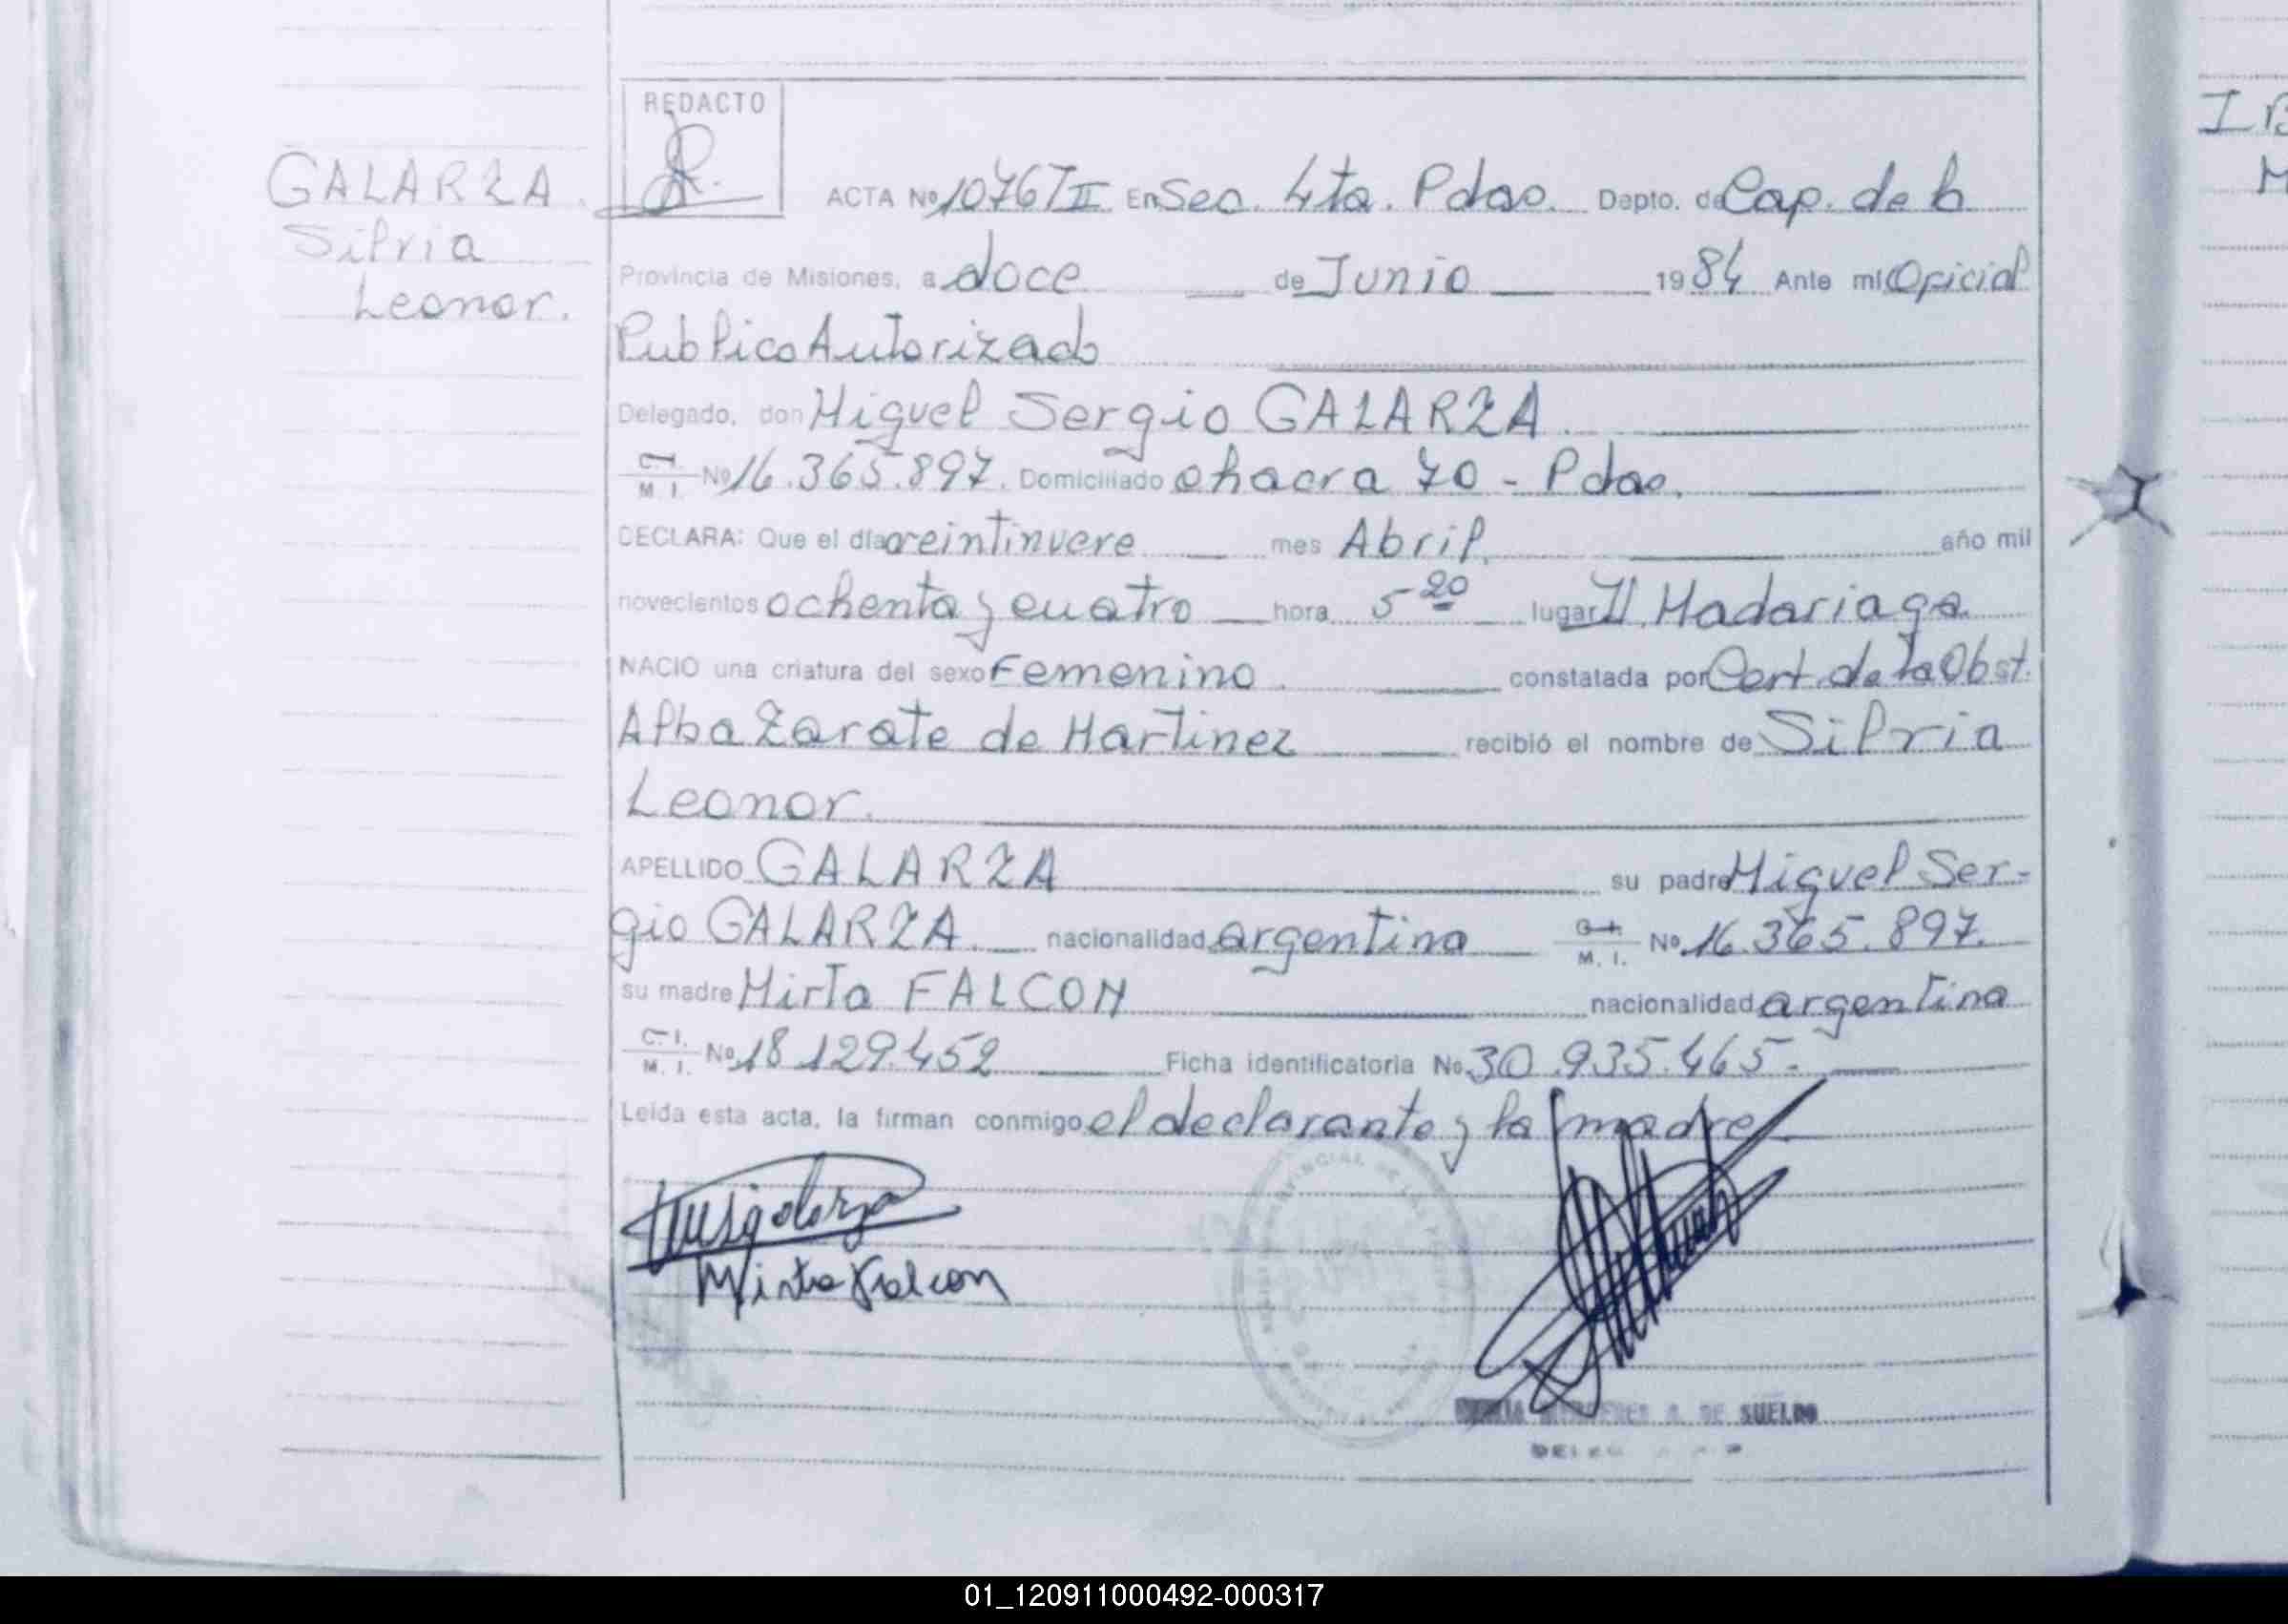 REDACTO
GALARZA
Silvia
Leonor.
ACTA Nº 1076 T II En Sec. 4ta. Pdas. Depto. de Cap. de la
Provincia de Misiones, a doce de Junio 1984 Ante mi Oficial
Publico Autorizado
Delegado, don Miguel Sergio GALARZA
C. I. M. I. Nº 16.365.897. Domiciliado chacra 70 - Pdas.
DECLARA: Que el día veintinueve mes Abril. año mil
novecientos ochenta y cuatro hora 5 20 lugar H. Madariaga
NACIO una criatura del sexo Femenino constatada por Cert. de la Obst.
Alba Zarate de Martinez recibió el nombre de Silvia
Leonor.
APELLIDO GALARZA su padre Miguel Ser-
gio GALARZA. nacionalidad argentina C. I. M. I. Nº 16.365.897.
su madre Mirta FALCON nacionalidad argentina
C. I. M. I. Nº 18 129.452 Ficha identificatoria Nº 30.935.465.-
Leída esta acta, la firman conmigo el declarante y la madre
Mirta Falcon
A. DE SUELDO
I
M
01_120911000492-000317